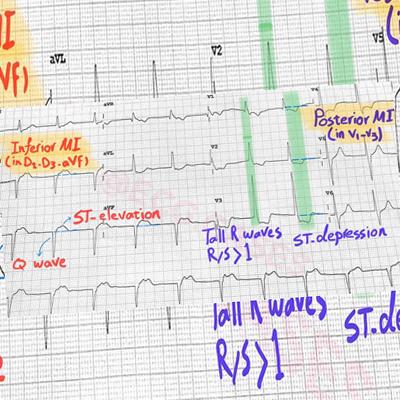 MI
aVf)
aVL
V2
(i
V5
aVR
V1
V4
Inferior MI
(in D2.D3.aVf)
aVL
V2
Posterior MI
(in V1-V3)
ST-elevation
aVF
V3
V6
Q wave
Tall R waves
R/S>1
ST.depression
Tall R waves
R/S>1
ST.de